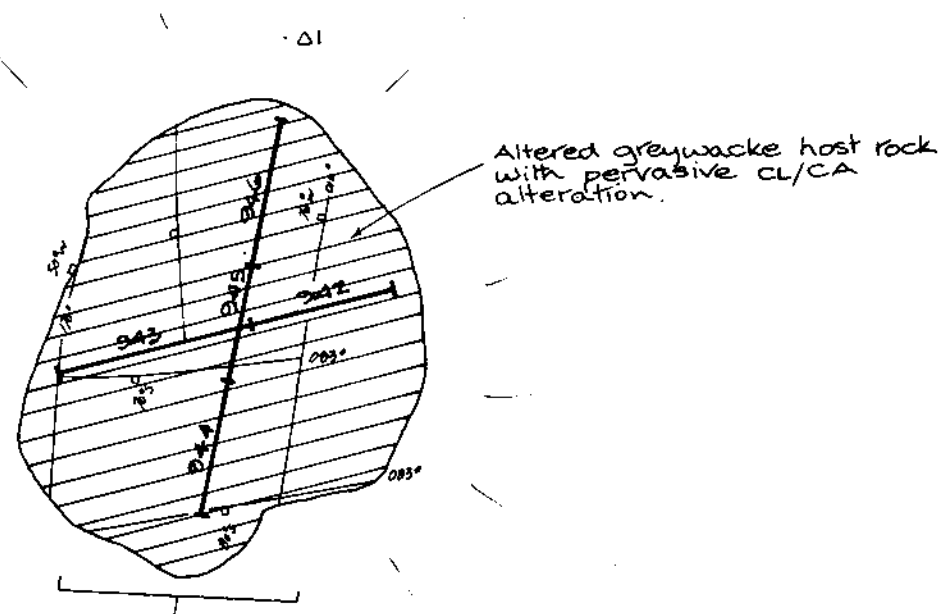 Δ1
Altered greywacke host rock
with pervasive CL/CA
alteration.
946
945
942
943
083°
944
083°